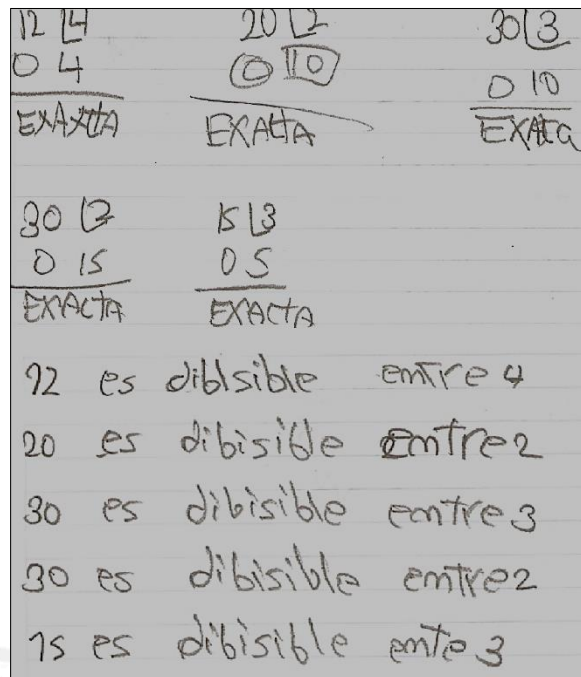 12 4 20 2 30 3
0 4 0 10 0 10
EXAXTA EXACTA EXACTA
30 2 15 3
0 15 0 5
EXACTA EXACTA
12 es dibisible entre 4
20 es dibisible entre 2
30 es dibisible entre 3
30 es dibisible entre 2
15 es dibisible ente 3